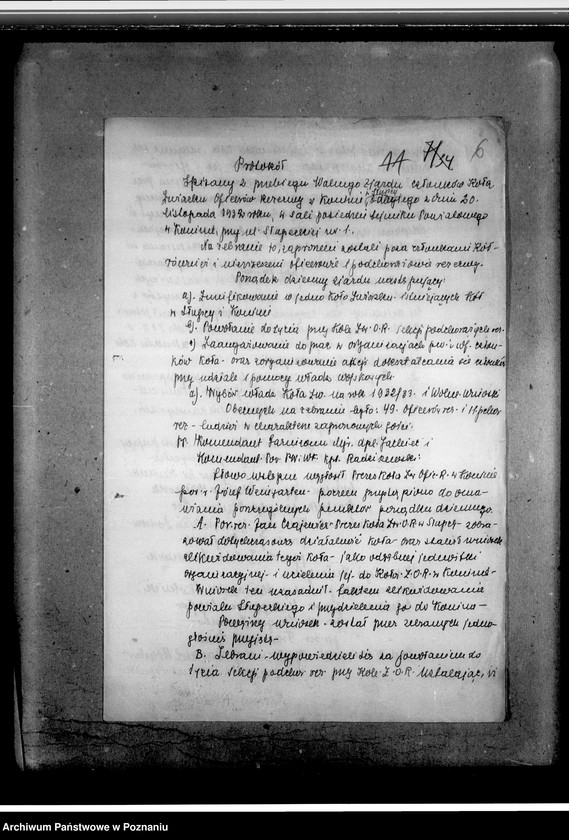 Protokół
AA 7/34
6
Spisany z przebiegu Walnego Zjazdu członków Koła
Związku Oficerów Rezerwy w Koninie, i Słupcy odbytego w dniu 20.
listopada 1932 roku, w sali posiedzeń Sejmiku Powiatowego
w Koninie, przy ul. Słupeckiej nr. 1.
Na zebranie to, zaproszeni zostali poza członkami Koła
również i niezrzeszeni oficerowie i podchorążowie rezerwy.
Porządek dzienny zjazdu następujący:
a). Zunifikowanie w jedno Koło Związku istniejących Kół
w Słupcy i Koninie
b). Powołanie do życia przy Kole Zw. O.R. sekcji podchorążych rez.
c) Zaangażowania do prac w organizacjach p.w. i w.f. człon-
ków Koła oraz zorganizowanie akcji dokształcania się członków
przy udziale i pomocy władz wojskowych.
d). Wybór władz Koła Zw. na rok 1932/33. i Wolne wnioski
Obecnych na zebraniu było: 49. oficerów rez. i 11 pchor.
rez. - tudzież w charakterze zaproszonych gości:
Komendant Garnizonu Mjr. dypl. i
Komendant Pow. P.W. i W.F. Kpt. Radziszewski:
Słowo wstępne wygłosił Prezes Koła Zw. Ofic. R. w Koninie
por. r. Józef Weingarten - poczem przystąpiono do oma-
wiania poszczególnych punktów porządku dziennego.
A. Por. rez. Jan Czajewicz - Prezes Koła Zw. O.R. w Słupcy - zobra-
zował dotychczasową działalność Koła - oraz stawił wniosek
zlikwidowania tegoż Koła - jako odrębnej jednostki
organizacyjnej - i wcielenia jej do Koła Z.O.R. w Koninie -
Wniosek ten uzasadnił faktem zlikwidowania
powiatu Słupeckiego i przydzielenia go do Konina -
Powyższy wniosek - został przez zebranych jedno-
głośnie przyjęty -
B. Zebrani - wypowiedzieli się za powołaniem do
życia Sekcji podchor. rez. przy Kole Z.O.R. ustalając, iż
Archiwum Państwowe w Poznaniu